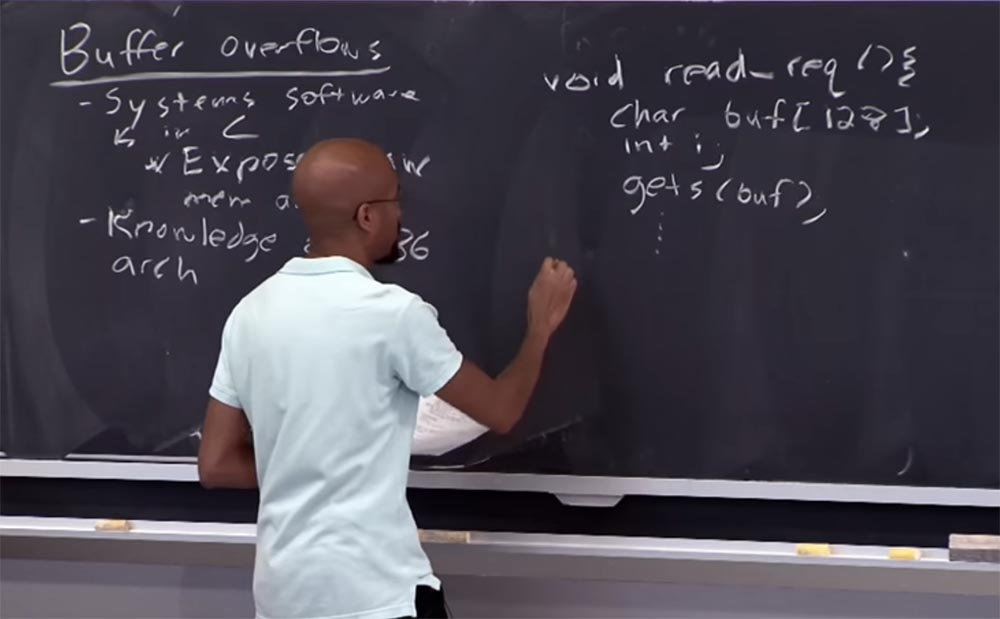 Buffer overflows
- Systems software
in C
* Expos
mem a
- Knowledge 86
arch
void read_req () {
char buf[128];
int i;
gets(buf);